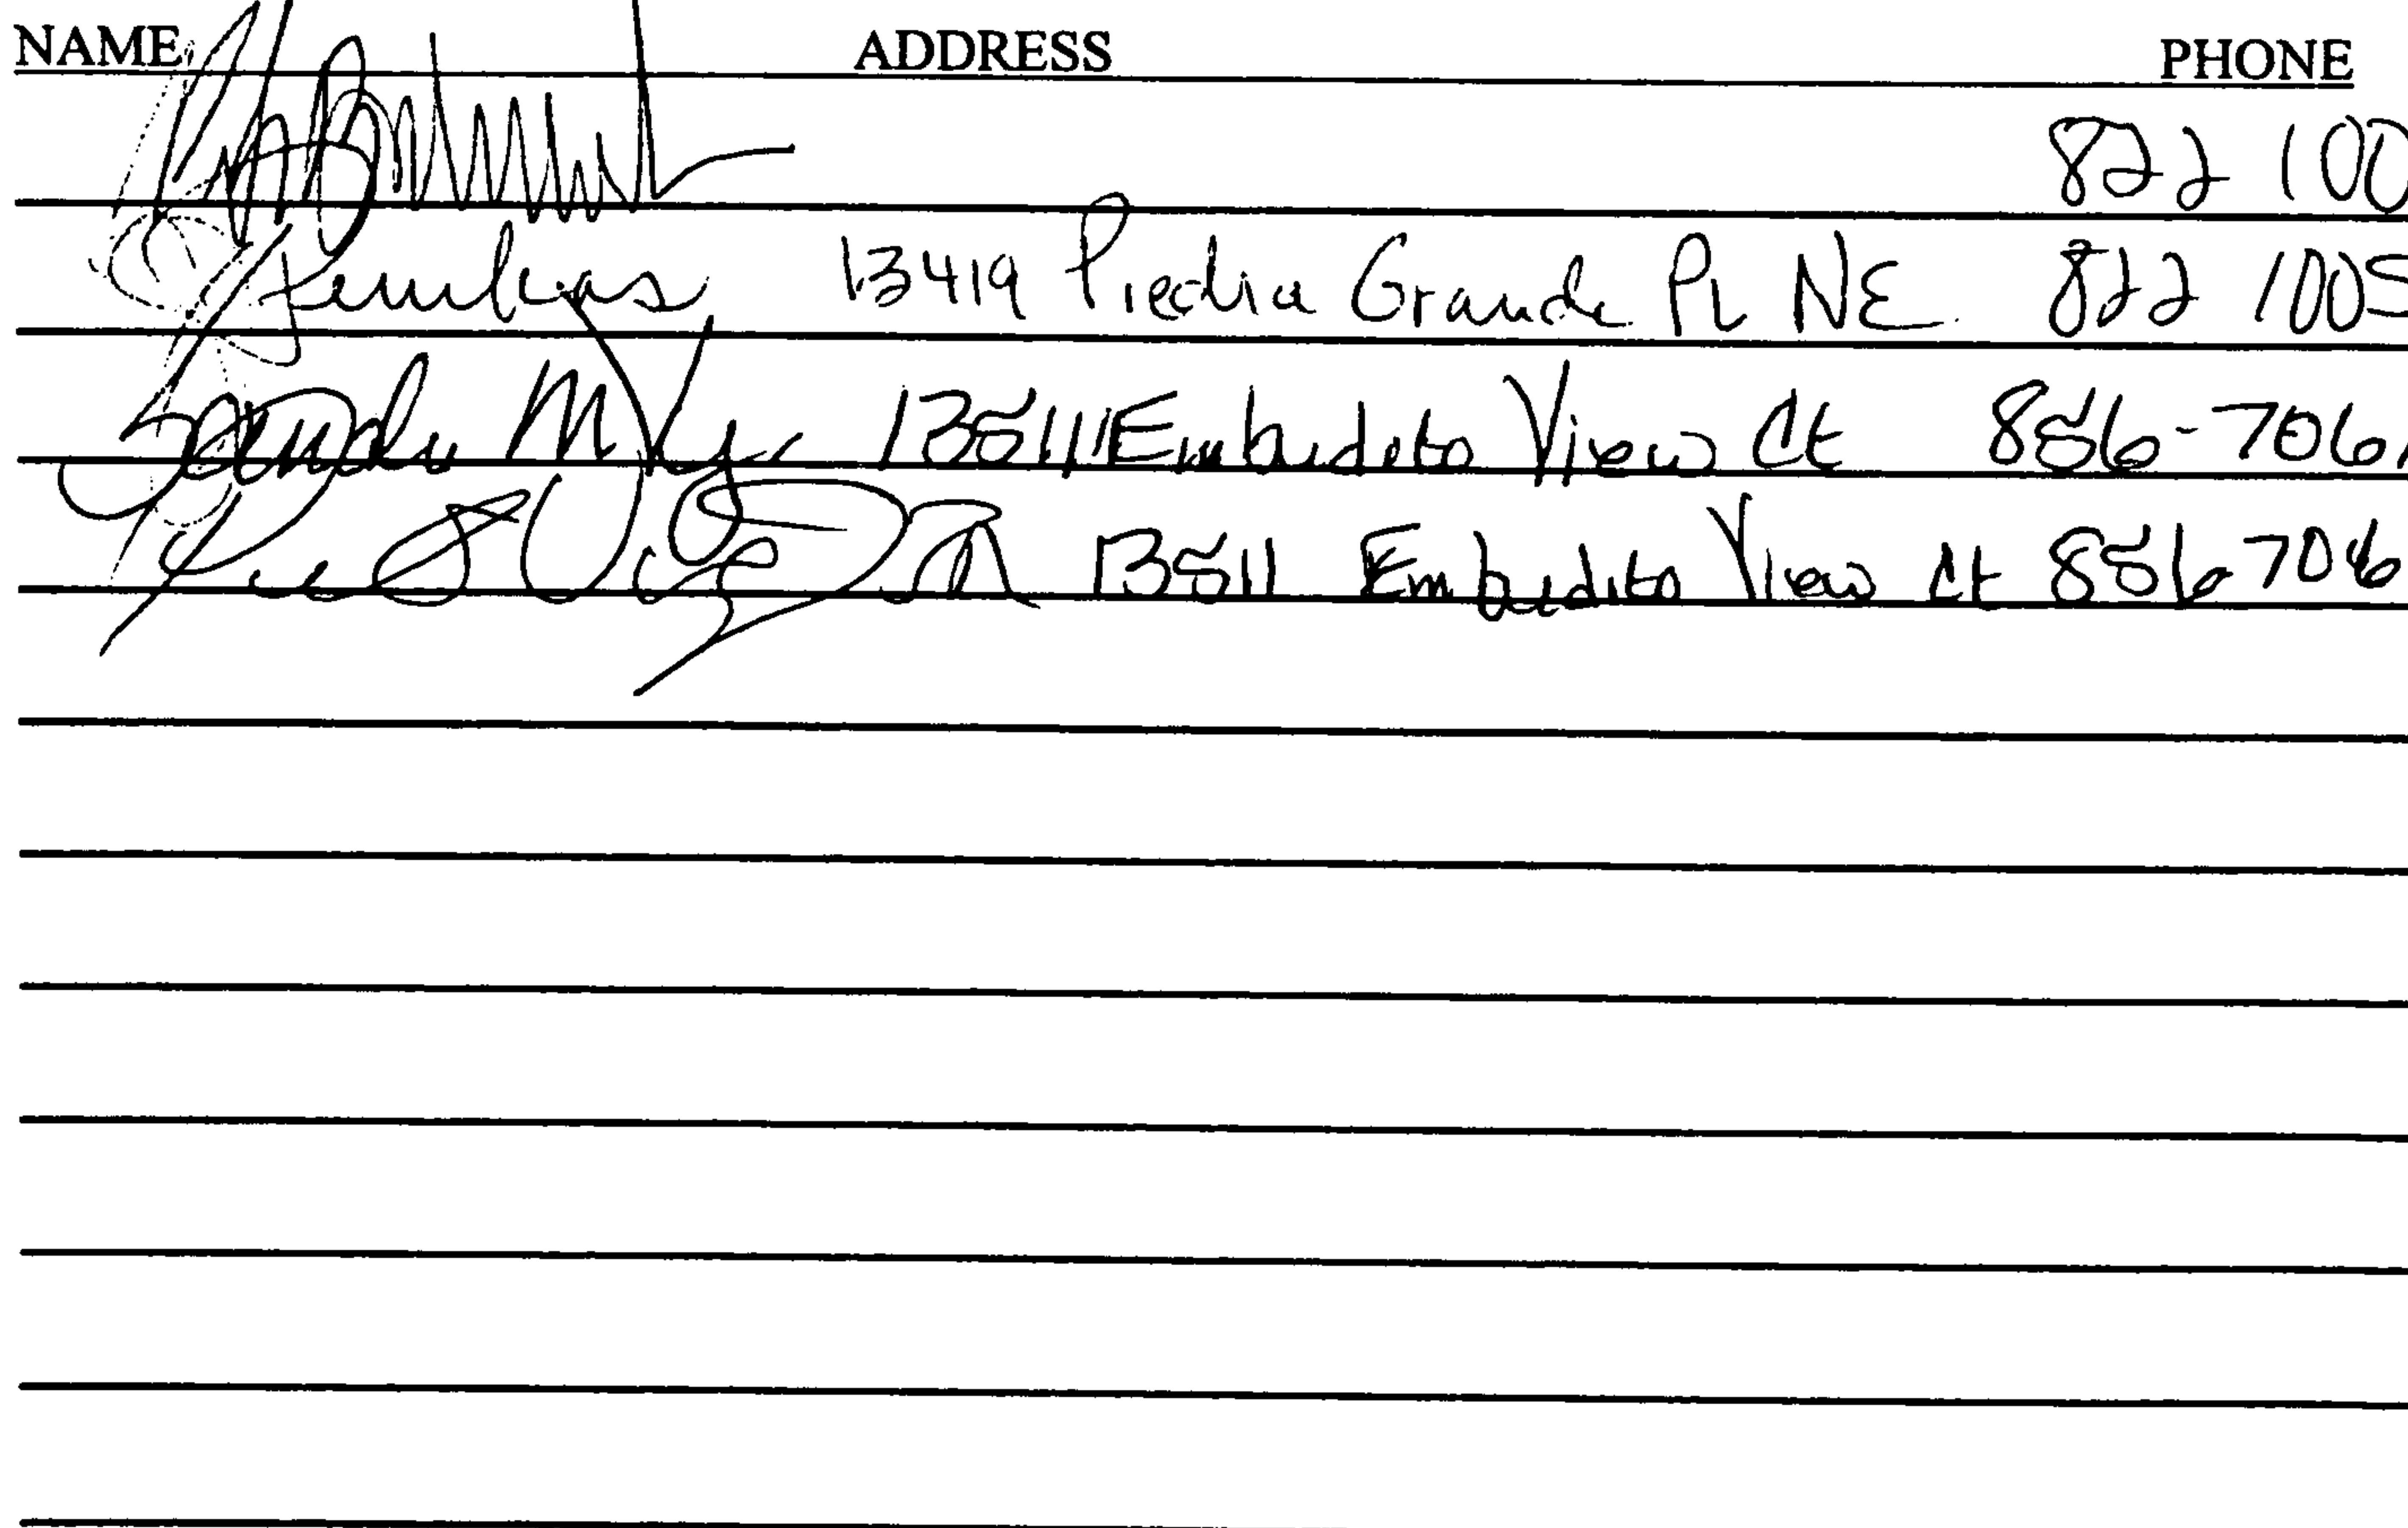 NAME ADDRESS PHONE
822 100
Jenkins 13419 Piedra Grande PL NE 822 1005
13511 Embudito View Ct 856-706
13511 Embudito View Ct 856 706